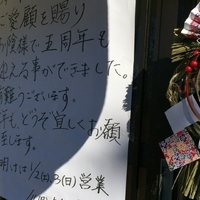 ご愛顧を賜り
お陰様で五周年も
迎える事ができました。
有難うございます。
年もどうぞ宜しくお願
致します。
明けは1/2(土)3(日)営業